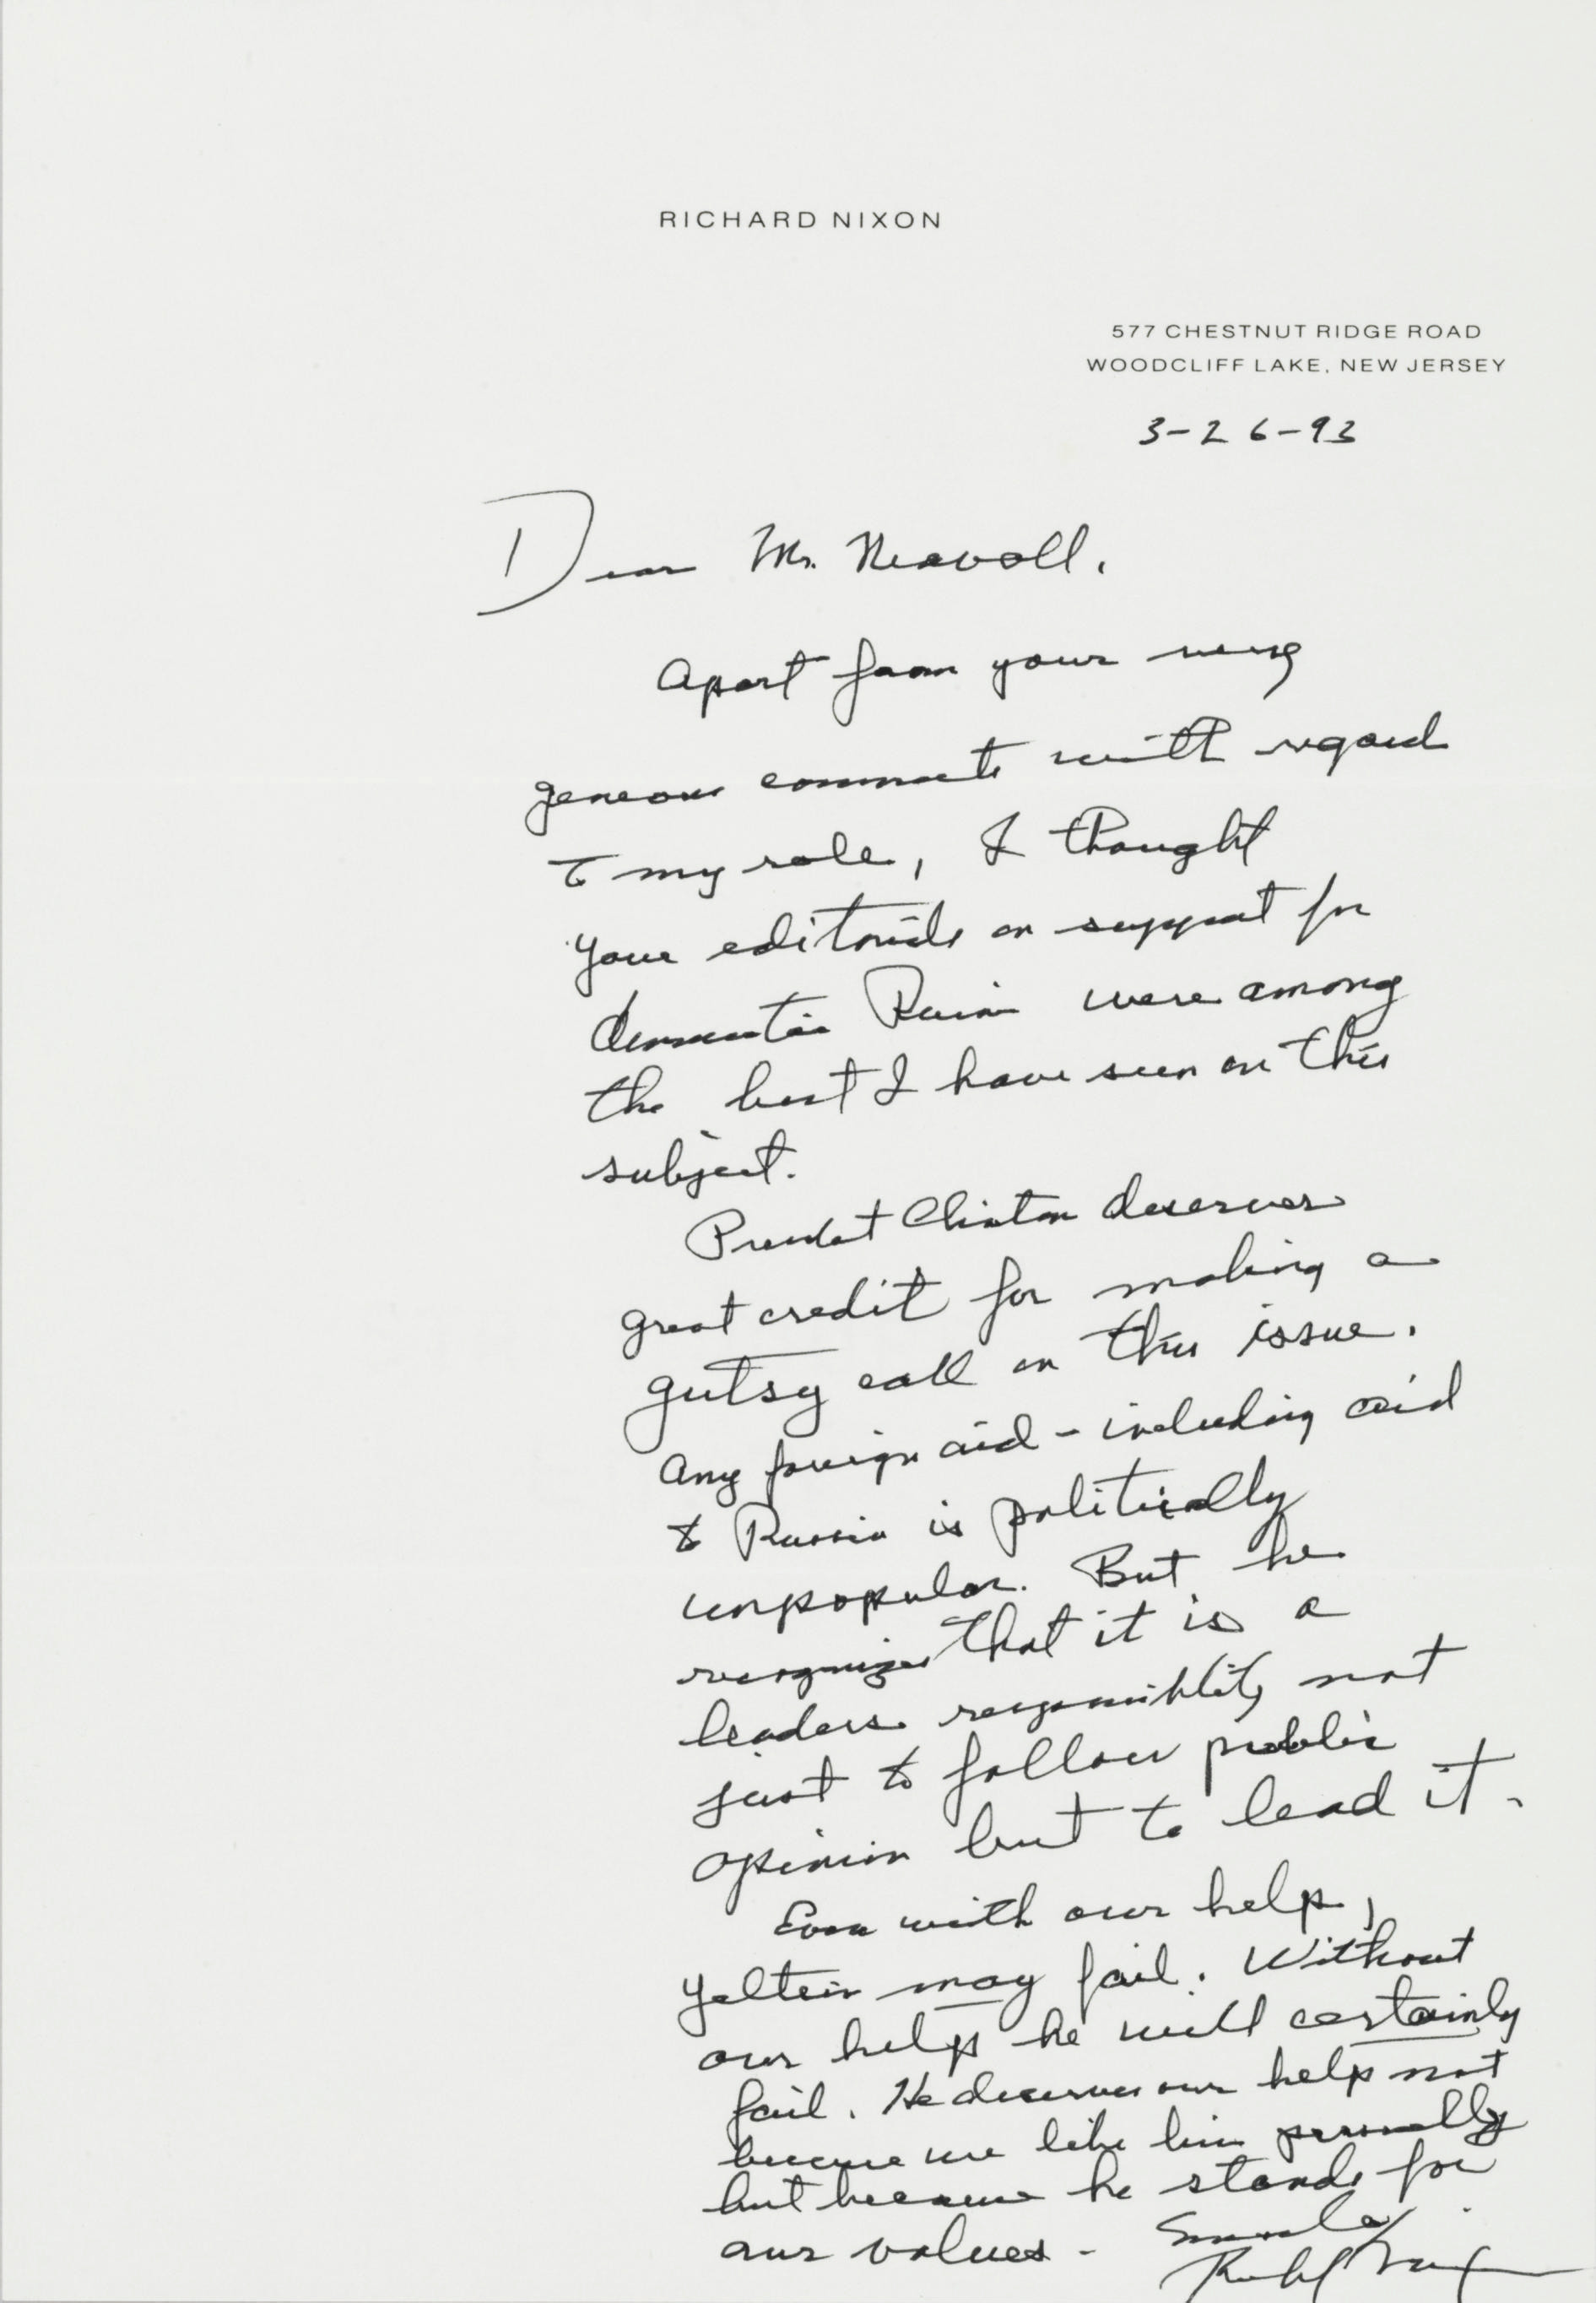 RICHARD NIXON
577 CHESTNUT RIDGE ROAD
WOODCLIFF LAKE, NEW JERSEY
3-26-93
Dear Mr. Neavoll,
Apart from your very
generous comments with regard
to my role, I thought
your editorials on support for
democratic Russia were among
the best I have seen on this
subject.
President Clinton deserves
great credit for making a
gutsy call on this issue.
Any foreign aid - including aid
to Russia is politically
unpopular. But he
recognizes that it is a
leaders responsibility not
just to follow public
opinion but to lead it.
Even with our help,
Yeltsin may fail. Without
our help he will certainly
fail. He deserves our help not
because we like him personally
but because he stands for
our values - Sincerely
Richard Nixon